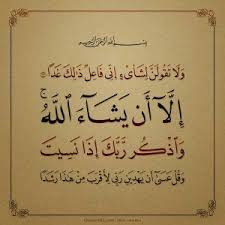 بسم الله الرحمن الرحيم
وَلَا تَقُولَنَّ لِشَا۟ىْءٍ إِنِّى فَاعِلٌ ذَٰلِكَ غَدًا
إِلَّآ أَن يَشَآءَ ٱللَّهُ ۚ
وَٱذْكُر رَّبَّكَ إِذَا نَسِيتَ
وَقُلْ عَسَىٰٓ أَن يَهْدِيَنِ رَبِّى لِأَقْرَبَ مِنْ هَٰذَا رَشَدًا